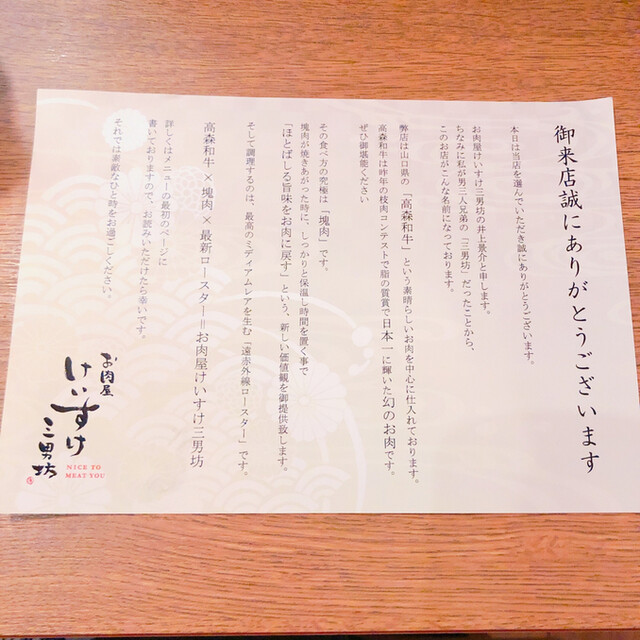 御来店誠にありがとうございます
本日は当店を選んでいただき誠にありがとうございます。
お肉屋けいすけ三男坊の井上景介と申します。
ちなみに私が男三人兄弟の「三男坊」だったことから、
このお店がこんな名前になっております。
弊店は山口県の「高森和牛」という素晴らしいお肉を中心に仕入れております。
高森和牛は昨年の枝肉コンテストで脂の質賞で日本一に輝いた幻のお肉です。
ぜひ御堪能ください
その食べ方の究極は「塊肉」です。
塊肉が焼きあがった時に、しっかりと保温し時間を置く事で
「ほとばしる旨味をお肉に戻す」という、新しい価値観を御提供致します。
そして調理するのは、最高のミディアムレアを生む「遠赤外線ロースター」です。
高森和牛×塊肉×最新ロースター=お肉屋けいすけ三男坊
詳しくはメニューの最初のページに
書いておりますので、お読みいただけたら幸いです。
それでは素敵なひと時をお過ごしください。
お肉屋
けいすけ
三男坊
NICE TO
MEAT YOU